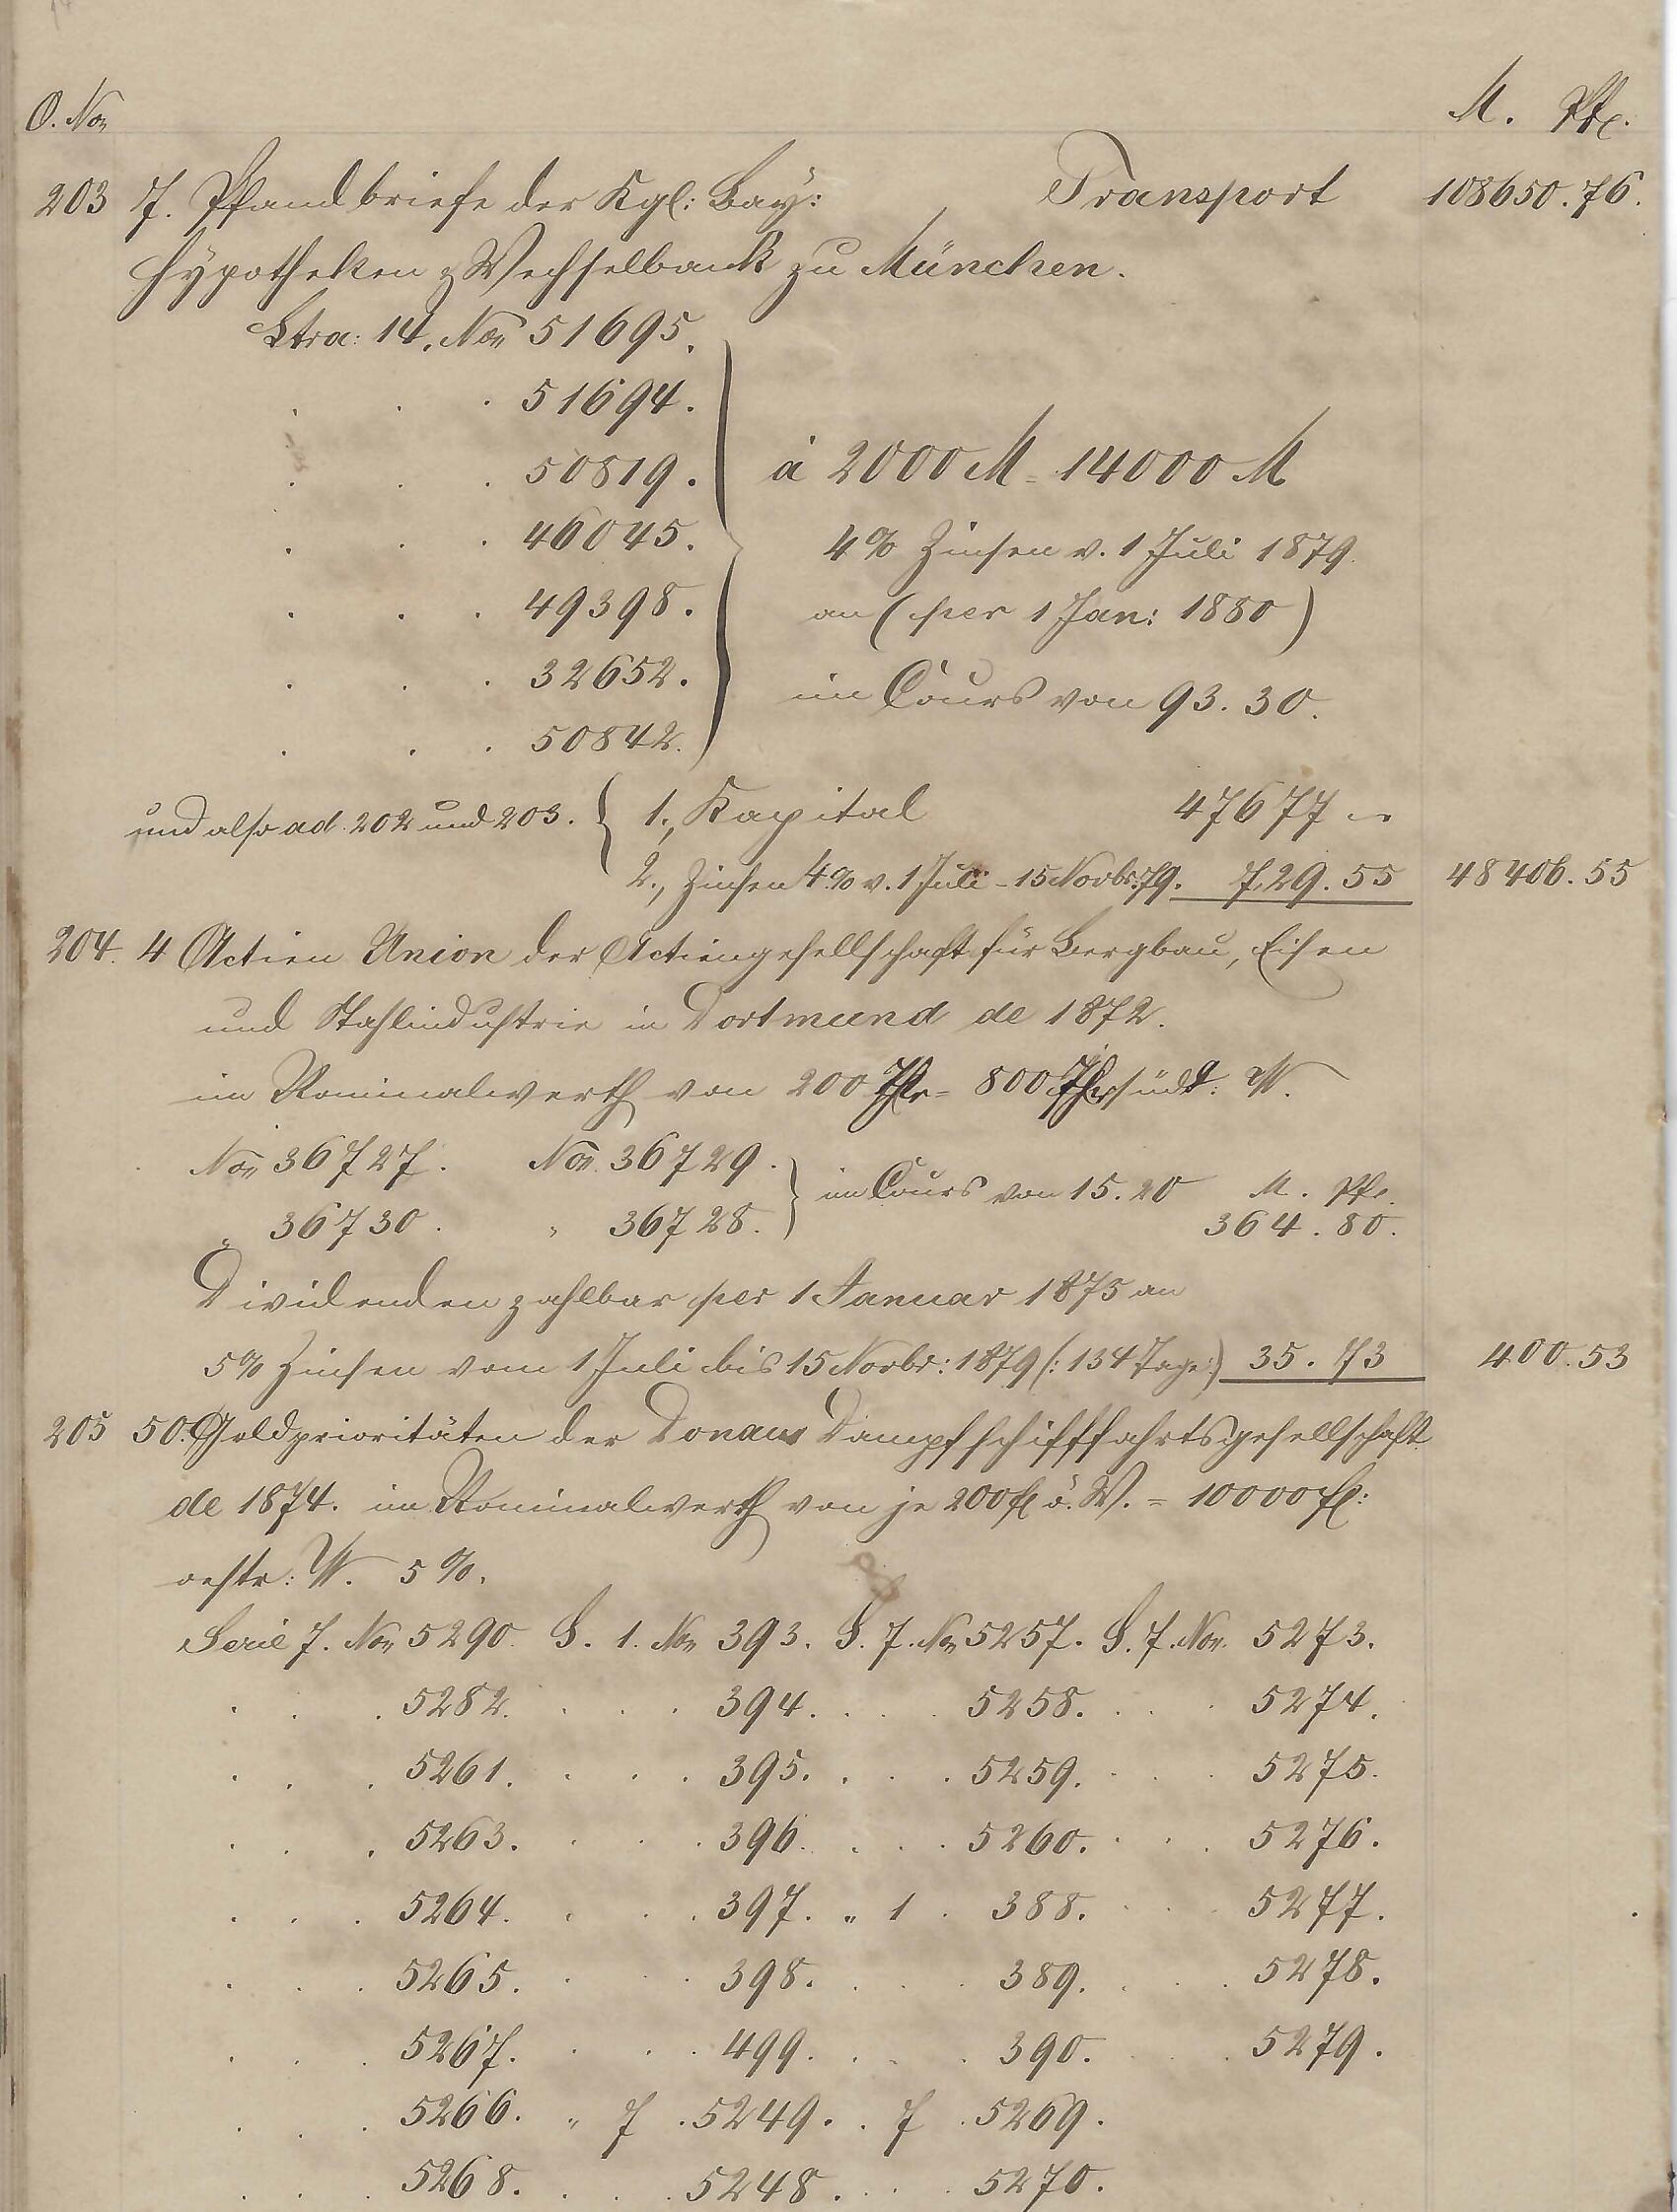 O. No. M. Pfe.
203 7. Pfandbriefe der Kgl: Bay: Transport 108650.76.
Hypotheken & Wechselbank zu München.
Ltra: 14. No. 51695.
51694.
50819. à 2000 M = 14000 M
46045. 4% Zinsen v. 1 Juli 1879
49398. an (per 1 Jan: 1880)
32652. im Cours von 93.30.
50842.
und also ad. 202 und 203. { 1., Kapital 47677 –
2., Zinsen 4% v. 1 Juli - 15 Novbr: 79. 729.55 48406.55
204. 4 Actien Union der Actiengesellschaft für Bergbau, Eisen
und Stahlindustrie in Dortmund de 1872.
im Nominalwerth von 200 Thlr = 800 Thlr südd: W.
No. 36727. No. 36729.
im Cours von 15.20 M. Pfe.
„ 36730. „ 36728. 364.80.
Dividenden zahlbar per 1 Januar 1875 an
5% Zinsen vom 1 Juli bis 15 Novbr: 1879 (: 134 Tage :) 35.73 400.53
205 50. Goldprioritäten der Donau Dampfschifffahrtsgesellschaft
de 1874. im Nominalwerth von je 200 fl ö. W. = 10000 fl:
oestr: W. 5%.
Serie 7. No. 5290. S. 1. No. 393. S. 7. No. 5257. S. 7. No. 5273.
5282. 394. 5258. 5274.
5261. 395. 5259. 5275.
5263. 396. 5260. 5276.
5264. 397. „ 1 . 388. 5277.
5265. 398. 389. 5278.
5267. 499. 390. 5279.
5266. „ 7 . 5249. . 7 . 5269.
5268. 5248. 5270.